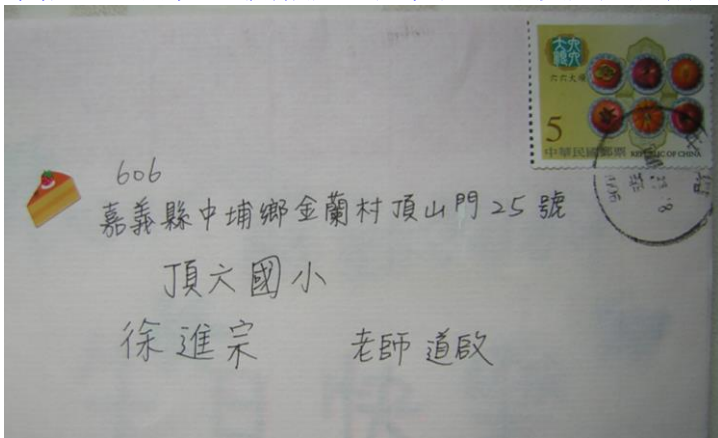 六六大順
5
中華民國郵票 REPUBLIC OF CHINA
606
嘉義縣中埔鄉金蘭村頂山門25號
頂六國小
徐進宗 老師 道啟